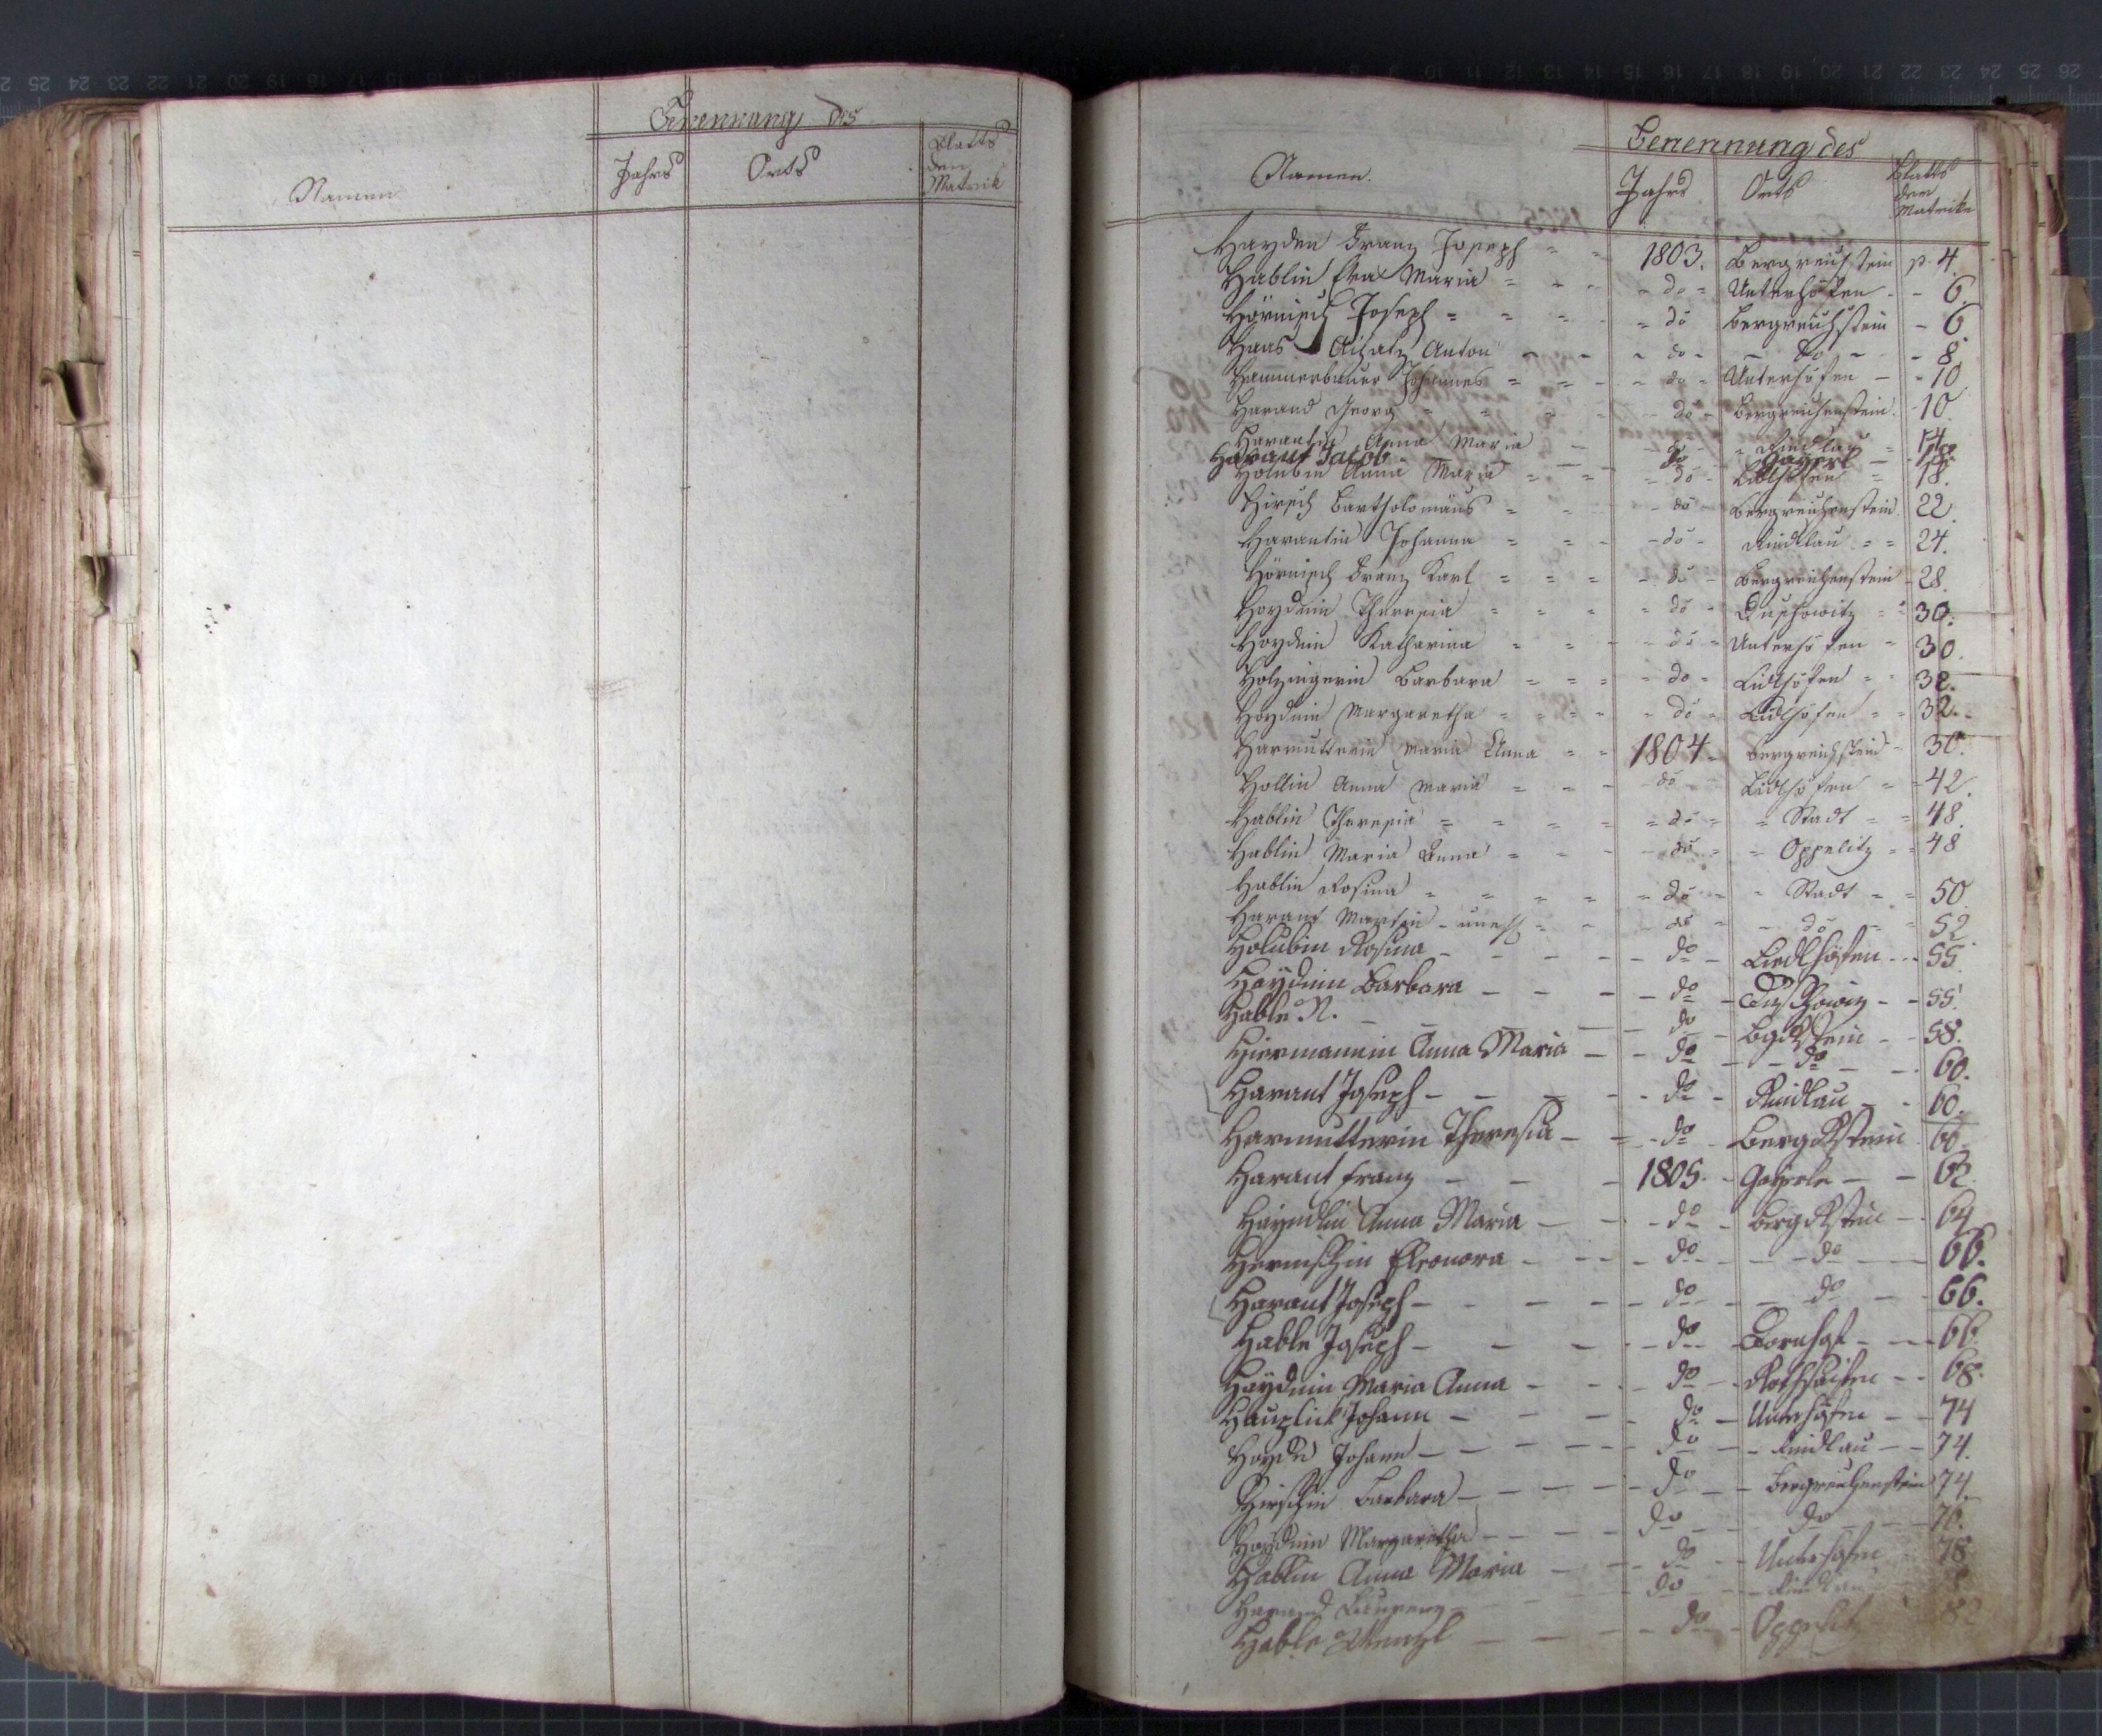 Benennung des
Namen
Jahrs
Orts
Blatts
der
Matrik
Benennung des
Namen.
Jahrs
Orts
Blatts
der
Matrike
Hayden Franz Joseph = = 1803. Bergreichstein p. 4.
Hablin Eva Maria = - - - do - Unterhöfen - - 6.
Hörnisch Joseph = = = = do Bergreichstein - 6.
Haas Anton - - - do - - do - - 8.
Hammerbauer Johannes = = - - do - Unterhöfen - - 10
Harand Georg = = = = - do - Bergreichenstein. 10.
Harantin Anna Maria - - do - = Rindlau = 14
Harant Jacob - - do - Gayerl - 
Holubin Anna Maria = = - do - Lidlhöfen = 18.
Hirsch Bartholomäus = = - do - Bergreichenstein. 22.
Harantin Johanna = = - - do - Rindlau = = 24.
Hörnisch Franz Karl = = = - do - Bergreichenstein - 28.
Hoydnin Theresia = = = = do - Duschowitz = = 30.
Hoydnin Katharina = = - - do = Unterhöfen = 30.
Holzingerin Barbara = = = - do - Lidlhöfen = - 32.
Hoydnin Margaretha = = = - = do = Lidlhöfen = = 32.
Harmutterin Maria Anna = = 1804. Bergreichstein - 36.
Hollin Anna Maria = = - - do - Lidlhöfen = - 42.
Hablin Theresia = = = = = do = = Stadt = = 48.
Hablin Maria Anna = = - - - do = - Oppelitz = = 48
Hablin Rosina = = = = = do = = Stadt = = 50.
Harant Martin - unehl = - - do = - do - = 52
Holubin Rosina - - - - - do - Liedlhöfen - - - 55.
Hoydnin Barbara - - - - do - Duschowiz - - 55.
Hable N. - - - - do - BgRstein - - 58.
Hiermannin Anna Maria - - do - - do - - 60.
Harant Joseph - - - - - do - Rindlau - - 60.
Harmutterin Theresia - - - do - BergRstein 60.
Harant Franz - - - 1805. - Gayerle - - 62.
Hayndlin Anna Maria - - - do - BergRstein - - 64
Hernischin Eleonora - - - - do - - - do - - 66.
Harant Joseph - - - - - do - - do - - 66.
Hable Joseph - - - - - do - - - - 66.
Hoydnin Maria Anna - - - do - Rothsaifen - - 68.
Hauzlick Johann - - - - do - Unterhöfen - - 74
Hoydn Johann - - - - - - do - - Rindlau - - 74.
Hirschin Barbara - - - - - do - - Bergreichenstein 74.
Hoydnin Margaretha - - - - do - - do - - 76.
Hablin Anna Maria - - - do - - Unterhöfen - 78
Harand - - do - - Rindlau
Hable Wenzl - - - - do - Oppelitz